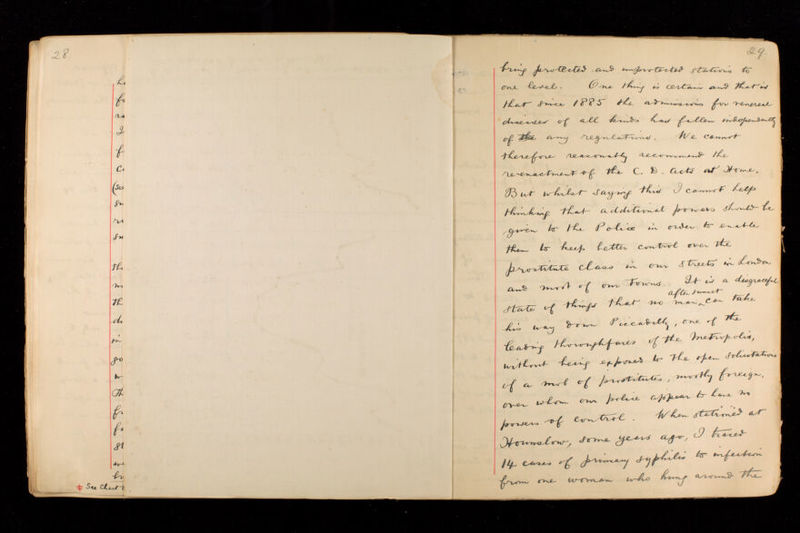 28
(See
* See Chart
29
bring protected and unprotected stations to
one level. One thing is certain and that is
that since 1885 the admissions for venereal
diseases of all kinds has fallen independently
of any regulations. We cannot
therefore reasonably recommend the
re-enactment of the C. D. Acts at Home.
But whilst saying this I cannot help
thinking that additional powers should be
given to the Police in order to enable
them to keep better control over the
prostitute class in our streets in London
and most of our towns. It is a disgraceful
after sunset
state of things that no man can take
his way down Piccadilly, one of the
leading thoroughfares of the Metropolis,
without being exposed to the open solicitations
of a mob of prostitutes, mostly foreign,
over whom our police appear to have no
powers of control. When stationed at
Hounslow, some years ago, I traced
14 cases of primary syphilis to infection
from one woman who hung around the